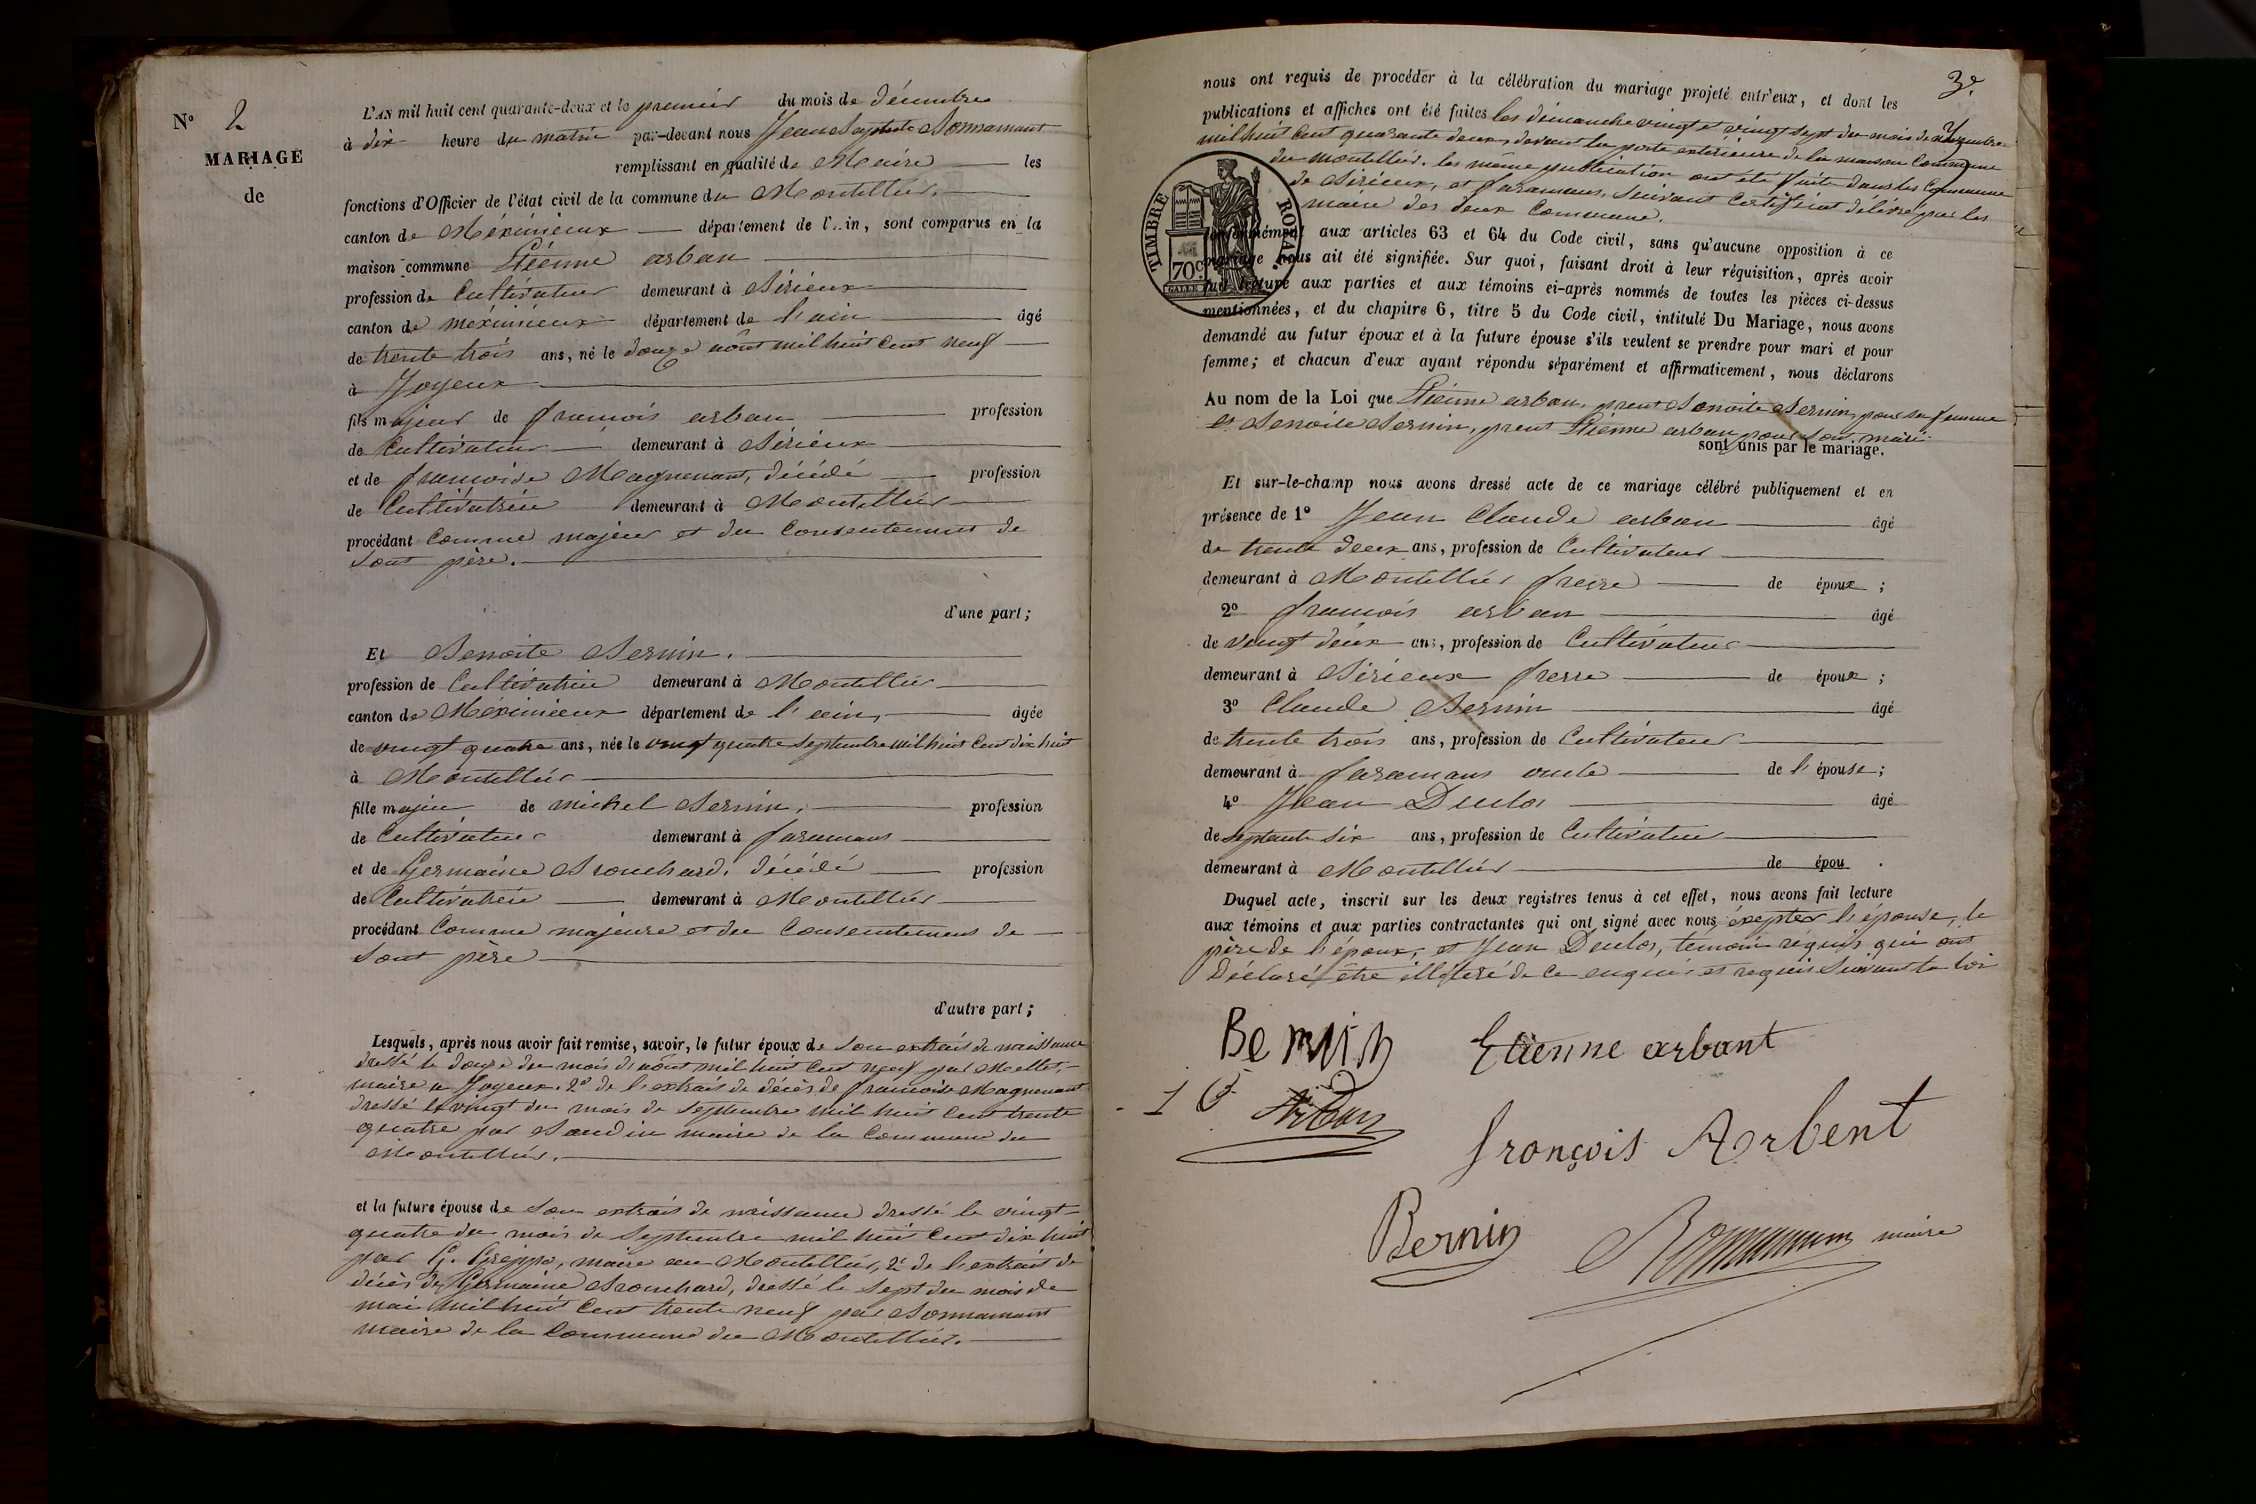 N° 2
MARIAGE
de
L'AN mil huit cent quarante-deux et le premier du mois de décembre
à dix heure du matin par-devant nous Jean Baptiste Bonnamant
remplissant en qualité de Maire les
fonctions d'Officier de l'état civil de la commune du Montellier
canton de Méximieux département de l'Ain, sont comparus en la
maison commune Etiénne arban
profession de Cultivateur demeurant à Birieux
canton de méximieux département de l'ain âgé
de trente trois ans, né le douze aôut mil huit cent neuf
à Joyeux
fils majeur de francois arban profession
de Cultivateur demeurant à Birieux
et de francoise Magnenant, décédé profession
de Cultivatrice demeurant à Montellier
procédant Comme majeur et du Consentement de
sont père.
d'une part;
Et Benoite Bernin.
profession de Cultivatrice demeurant à Montellier
canton de Méximieux département de l'ain, âgée
de vingt quatre ans, née le vingt quatre septembre mil huit Cent dix huit
à Montellier
fille majeure de michel Bernin, profession
de Cultivateur demeurant à faramans
et de Germaine Brouchard, décédé profession
de Cultivatrice demeurant à Montellier
procédant Comme majeure et du Consentement de
sont père
d'autre part;
Lesquels, après nous avoir fait remise, savoir, le futur époux de son extrait de naissance
dressé le douze du mois d'aôut mil huit Cent neuf par Mellet,
maire a Joyeux. 2° de l'extrait de décès de francoise Magnenant
dressé le vingt du mois de septembre mil huit Cent trente
quatre par Baudin maire de la Commune du
Montellier.
et la future épouse de son extrait de naissance dressé le vingt
quatre du mois de Septembre mil huit Cent dix huit
par G. Greppo, maire au Montellier, 2° de l'extrait de
décès de Germaine Brouchard, dressé le sept du mois de
mai mil huit Cent trente neuf par Bonnamant
maire de la Commune du Montellier.
3e
nous ont requis de procéder à la célébration du mariage projeté entr'eux, et dont les
publications et affiches ont été faites les dimanche vingt et vingt sept du mois de novembre
mil huit Cent quarante deux, devant la porte exterieure de la maison Commune
du montellier. les même publication ont été faite dans les Commune
de Birieux, et faramans, suivant Certificat délivré par les
maire des deux Commune.
TIMBRE ROYAL
70c.
conformément aux articles 63 et 64 du Code civil, sans qu'aucune opposition à ce
mariage nous ait été signifiée. Sur quoi, faisant droit à leur réquisition, après avoir
fait lecture aux parties et aux témoins ci-après nommés de toutes les pièces ci-dessus
mentionnées, et du chapitre 6, titre 5 du Code civil, intitulé Du Mariage, nous avons
demandé au futur époux et à la future épouse s'ils veulent se prendre pour mari et pour
femme; et chacun d'eux ayant répondu séparément et affirmativement, nous déclarons
Au nom de la Loi que Etiénne arban, prent Benoite Bernin, pour sa femme
et Benoite Bernin, prent Etiénne arban pour son mari
sont unis par le mariage.
Et sur-le-champ nous avons dressé acte de ce mariage célébré publiquement et en
présence de 1° Jean Claude arban âgé
de trente deux ans, profession de Cultivateur
demeurant à Montellier frerre de époux ;
2° francois arban âgé
de vingt deux ans, profession de Cultivateur
demeurant à Birieux frerre de époux ;
3° Claude Bernin âgé
de trente trois ans, profession de Cultivateur
demeurant à faramans oncle de l'épouse;
4° Jean Duclos âgé
de septante six ans, profession de Cultivateur
demeurant à Montellier de épou .
Duquel acte, inscrit sur les deux registres tenus à cet effet, nous avons fait lecture
aux témoins et aux parties contractantes qui ont signé avec nous éxepter l'épouse, le
père de l'époux, et Jean Duclos, temoin réquis qui ont
déclaré être illiteré de ce enquis et requis suivant la loi
Bernin Etienne arbant
Arban
françois Arbent
Bernin Bonnamant maire